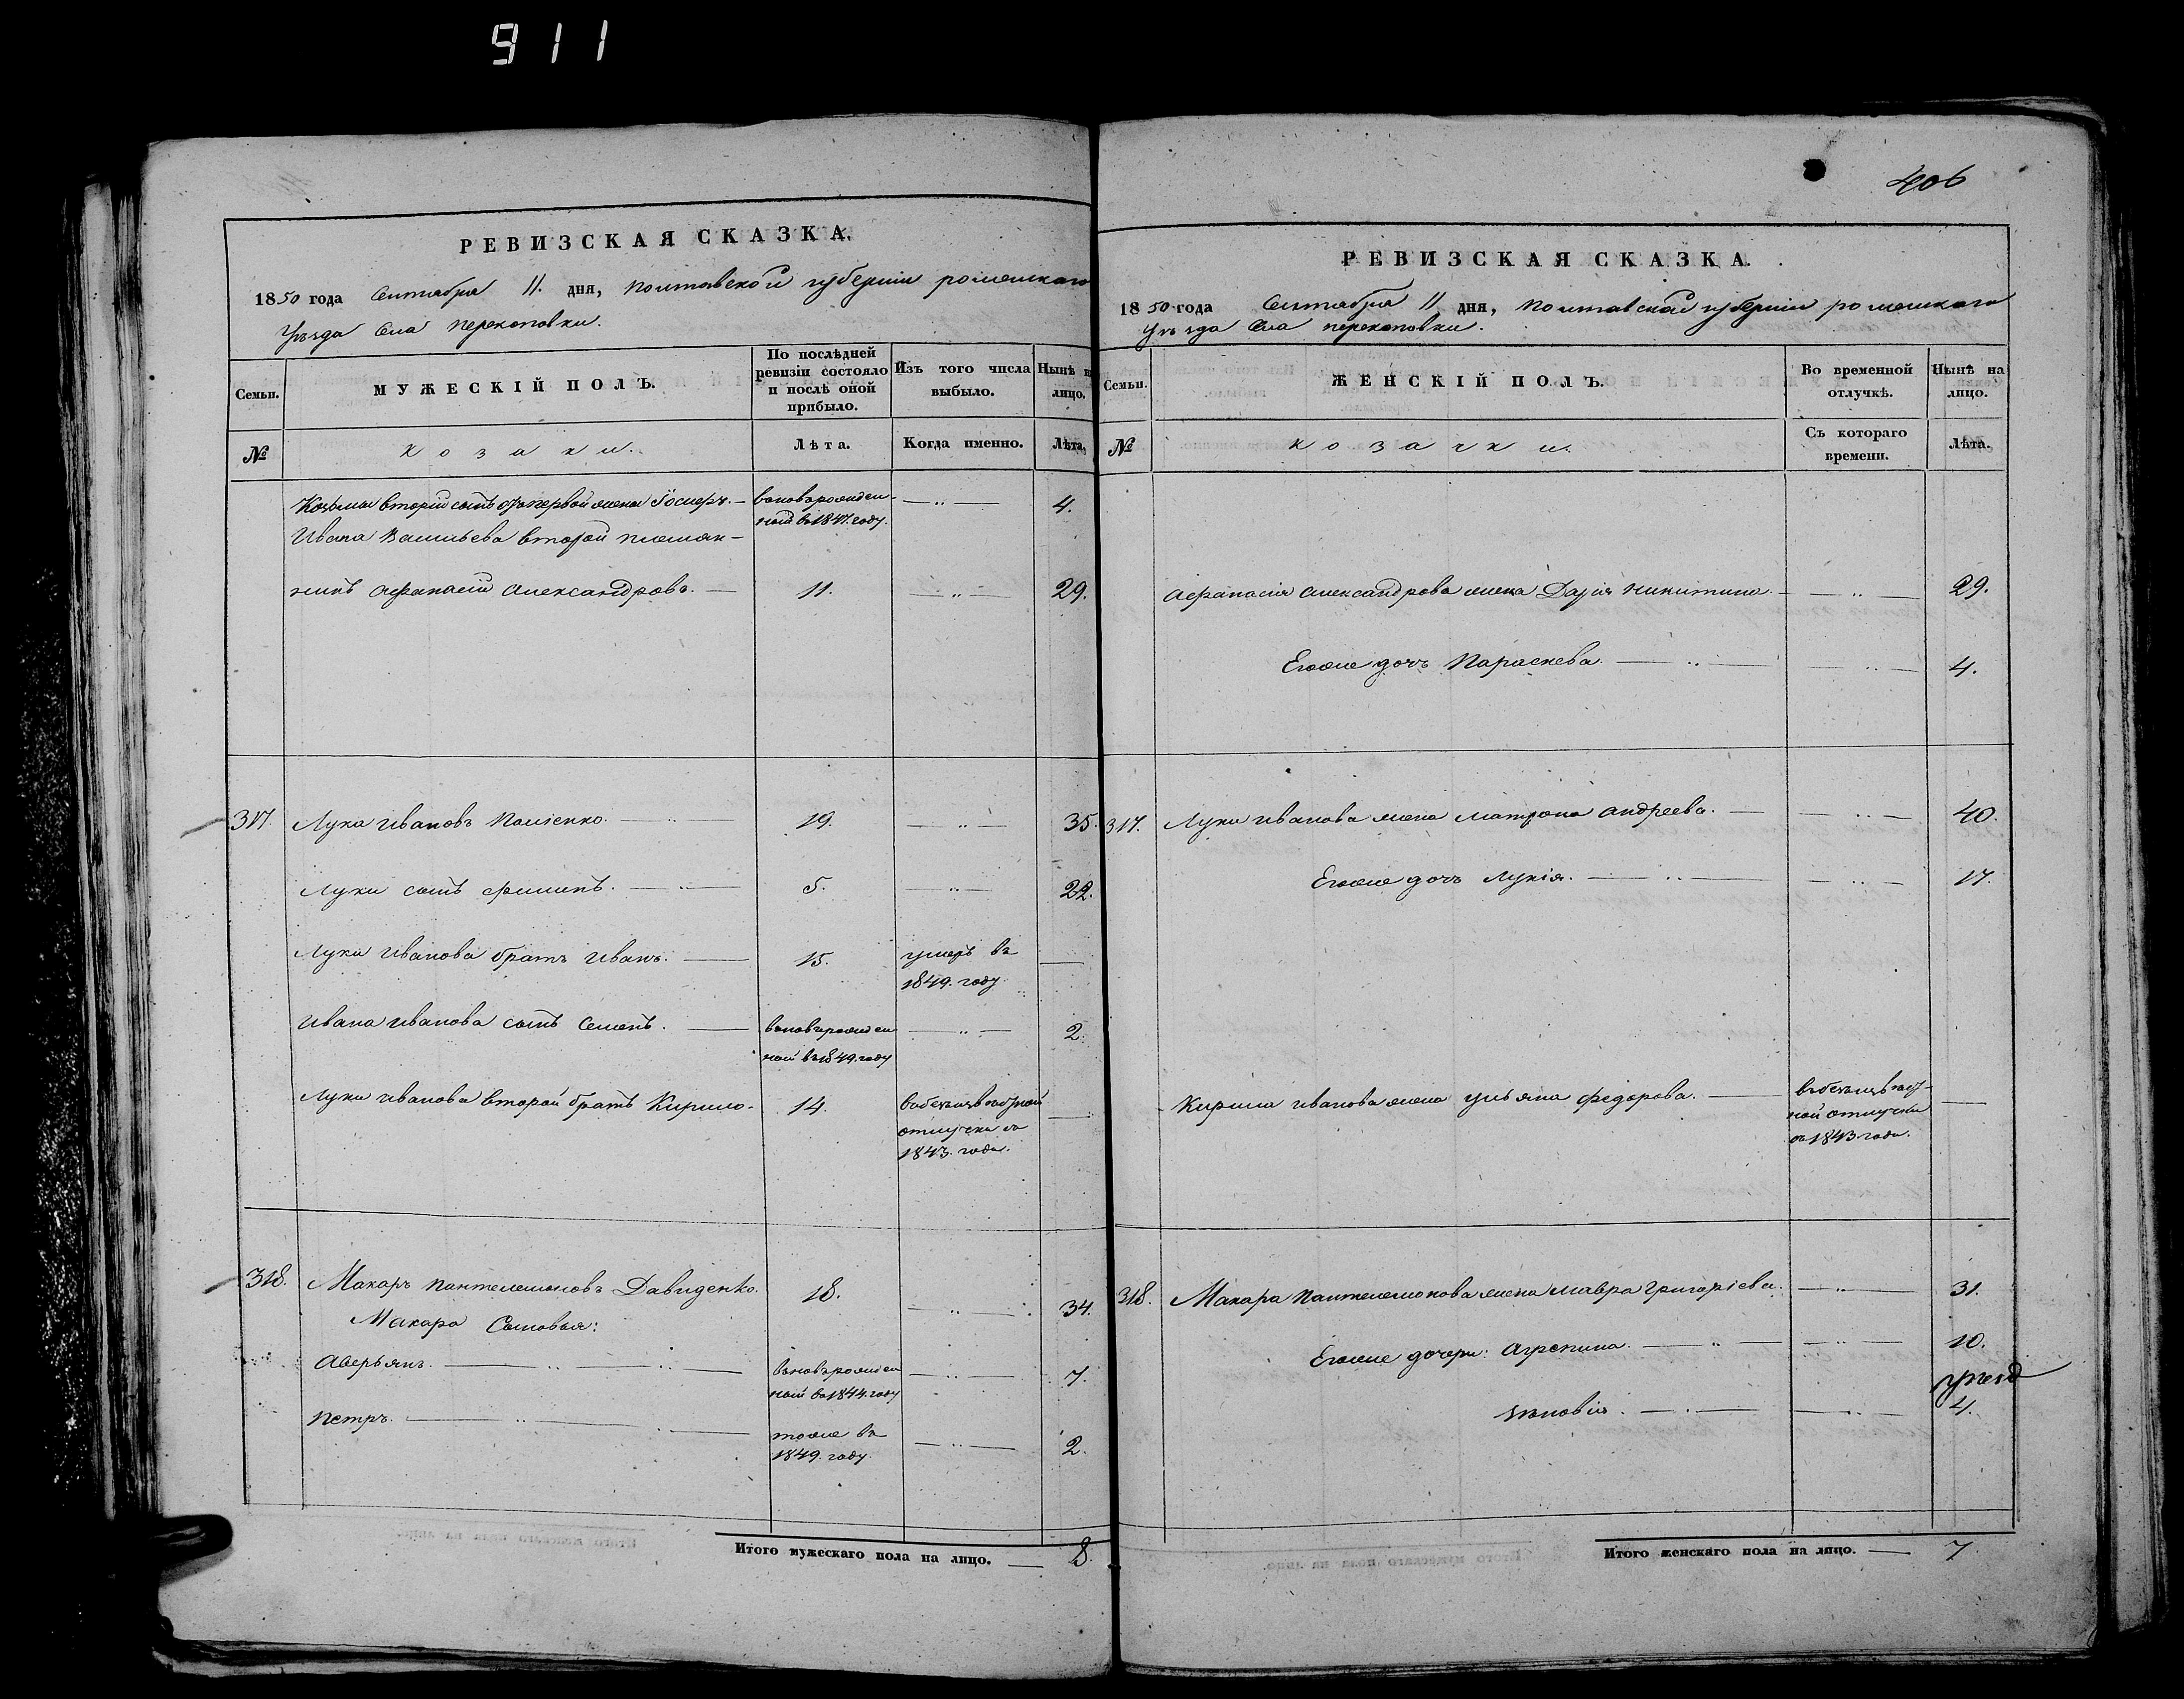 911
РЕВИЗСКАЯ СКАЗКА.
1850 года Сентября 11. дня, Полтавской губернiи роменскаго
Уѣзда Села Перекоповки.
Семьи.
МУЖЕСКIЙ ПОЛЪ.
По послѣдней ревизiи состояло и послѣ оной прибыло.
Изъ того числа выбыло.
Нынѣ на лицо.
№
козаки.
Лѣта.
Когда именно.
Лѣта.
Козьма вторый сынъ отъ первой жены Iосифъ. — вновьрожден- — „ — 4.
ный въ 1847. году.
Ивана Васильева второй племян-
никъ Афанасiй Александровъ. — 11. — „ — 29.
317. Лука Ивановъ Полiенко. — „ — 19. — „ — 35.
Луки сынъ Филипъ. — „ — 5. — „ — 22.
Луки Иванова братъ Иванъ. — 15. умеръ въ —
1849. году.
Ивана Иванова сынъ Семенъ. — вновьрожден — „ — 2.
ный въ 1849. году
Луки Иванова второй братъ Кирило. 14. —
отлучки съ
1843. года.
318. Макаръ Пантелемоновъ Давиденко. 18. — „ — 34.
Макара Сыновья:
Аверьянъ. — „ — вновьрожден — „ — 7.
ный въ 1844. году
Петръ. — „ — тоже въ — „ — 2.
1849. году.
Итого мужескаго пола на лицо. — 8.
406
РЕВИЗСКАЯ СКАЗКА.
1850 года Сентября 11 дня, Полтавской губернiи роменскаго
Уѣзда Села Перекоповки.
Семьи.
ЖЕНСКIЙ ПОЛЪ.
Во временной отлучкѣ.
Нынѣ на лицо.
№
козачки.
Съ котораго времени.
Лѣта.
Афанасiя Александрова жена Дарiя Никитина. — „ — 29.
Егоже дочь Параскева. — „ — 4.
317. Луки Иванова жена Матрона Андреева. — „ — 40.
Егоже дочь Лукiя. — „ — 17.
Кирила Иванова жена Ульяна Федорова. —
ной отлучки
съ 1843 года.
318. Макара Пантелемонова жена Мавра Григорiева. — „ — 31.
Егоже дочери: Агрепина. — „ — 10.
Зѣновiя. — „ — 4.
Итого женскаго пола на лицо. — 7